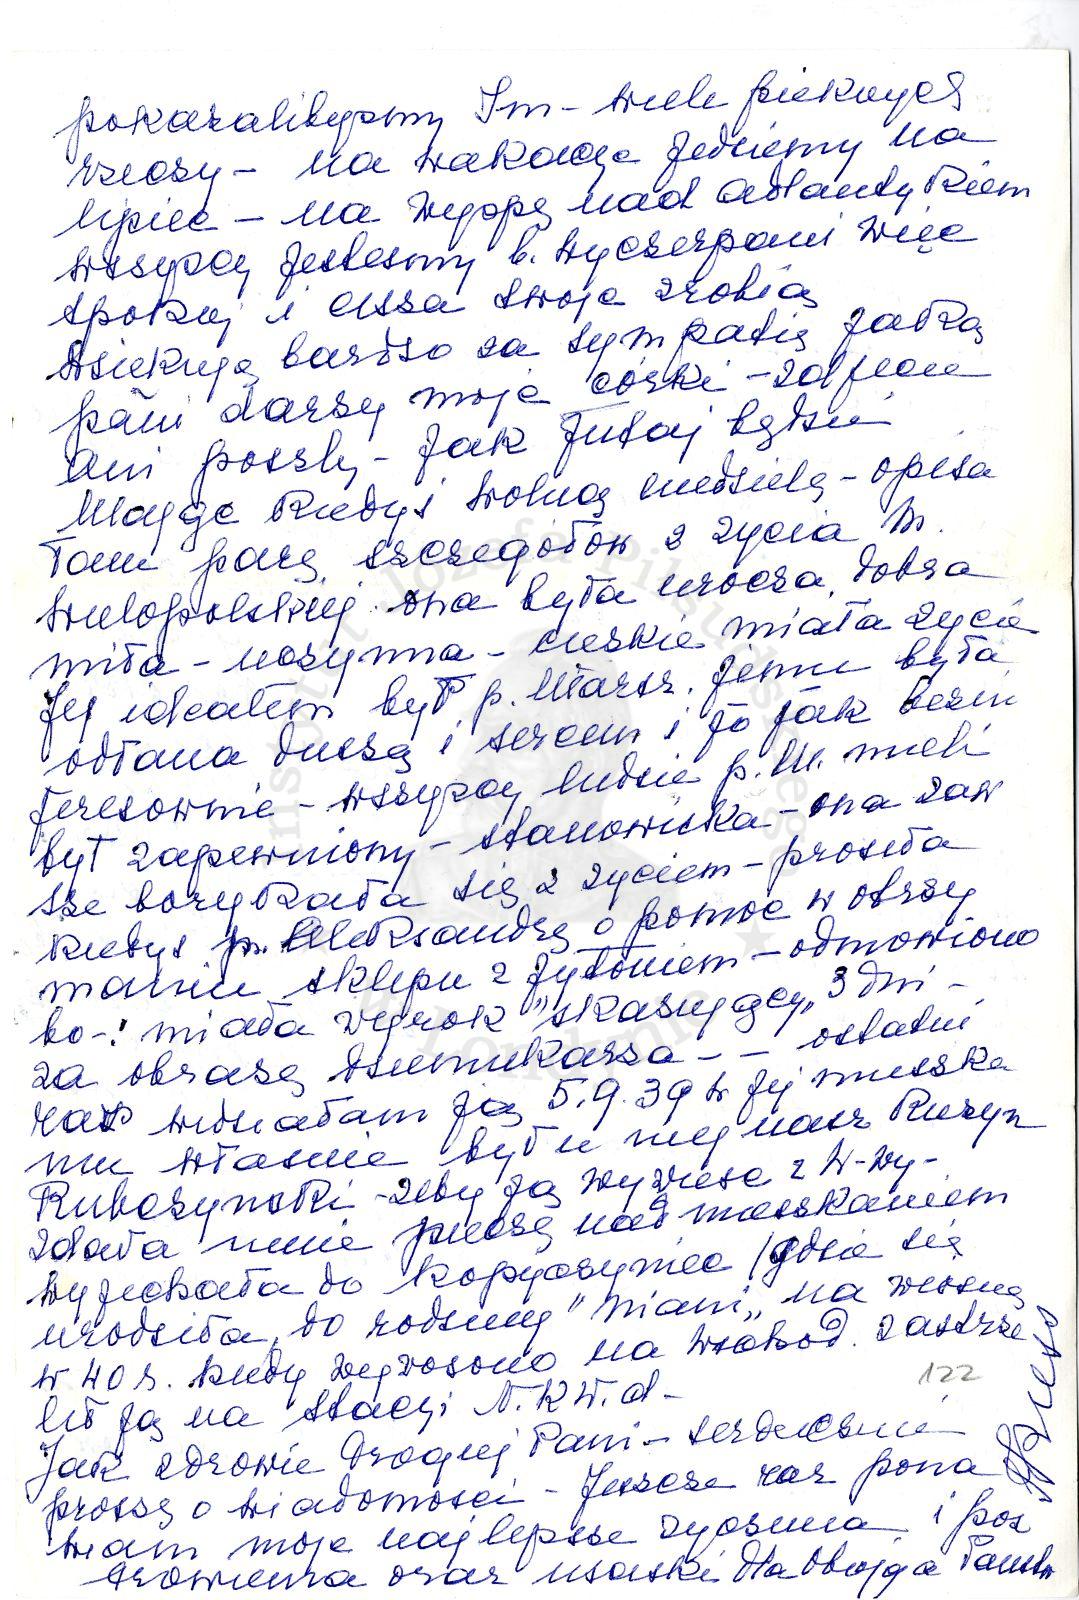 pokazalibyśmy Im – wiele pięknych
rzeczy – na wakacje jedziemy na
lipiec – na wyspę nad Atlantykiem
wszyscy jesteśmy b. wyczerpani więc
spokój i cisza swoje zrobią
Dziękuję bardzo za sympatię jaką
pani darzy moje córki – zdjęcie
Ani poszlę – jak tutaj będzie
Mając kiedyś wolną niedzielę – opisa
łam parę szczegółów z życia M.
wielopolskiej. ona była urocza, dobra
miła – uczynna – ciężkie miała życie
Jej ideałem był p. Marsz. Jemu była
oddana duszą i sercem i to jak bezin
teresownie – wszyscy ludzie p. M. mieli
byt zapewniony – stanowiska – ona zaw
sze borykała się z życiem – prosiła
kiedyś p. Aleksandrę o pomoc w otrzy
maniu sklepu z tytoniem – odmówiono
bo –! miała wyrok "skazujący" 3 dni –
za obrazę dziennikarza – – ostatni
raz widziałam ją 5.9.39 w jej mieszka
niu właśnie był u niej nasz kuzyn
Rubczyński – żeby ją wywieść z W-wy –
zdała mnie pieczę nad mieszkaniem
wyjechała do Kopyczyniec /gdzie się
urodziła, do rodziny "niani" na wiosnę
w 40 r. kiedy wywożono na wschód. zastrze
lił ją na stacji N.K.W.d –
Jak zdrowie Drogiej Pani – serdecznie
proszę o wiadomości – Jeszcze raz pona
wiam moje najlepsze życzenia i poz
drowienia oraz uściski dla Obojga Państw
122
Instytut Józefa Piłsudskiego
w Londynie